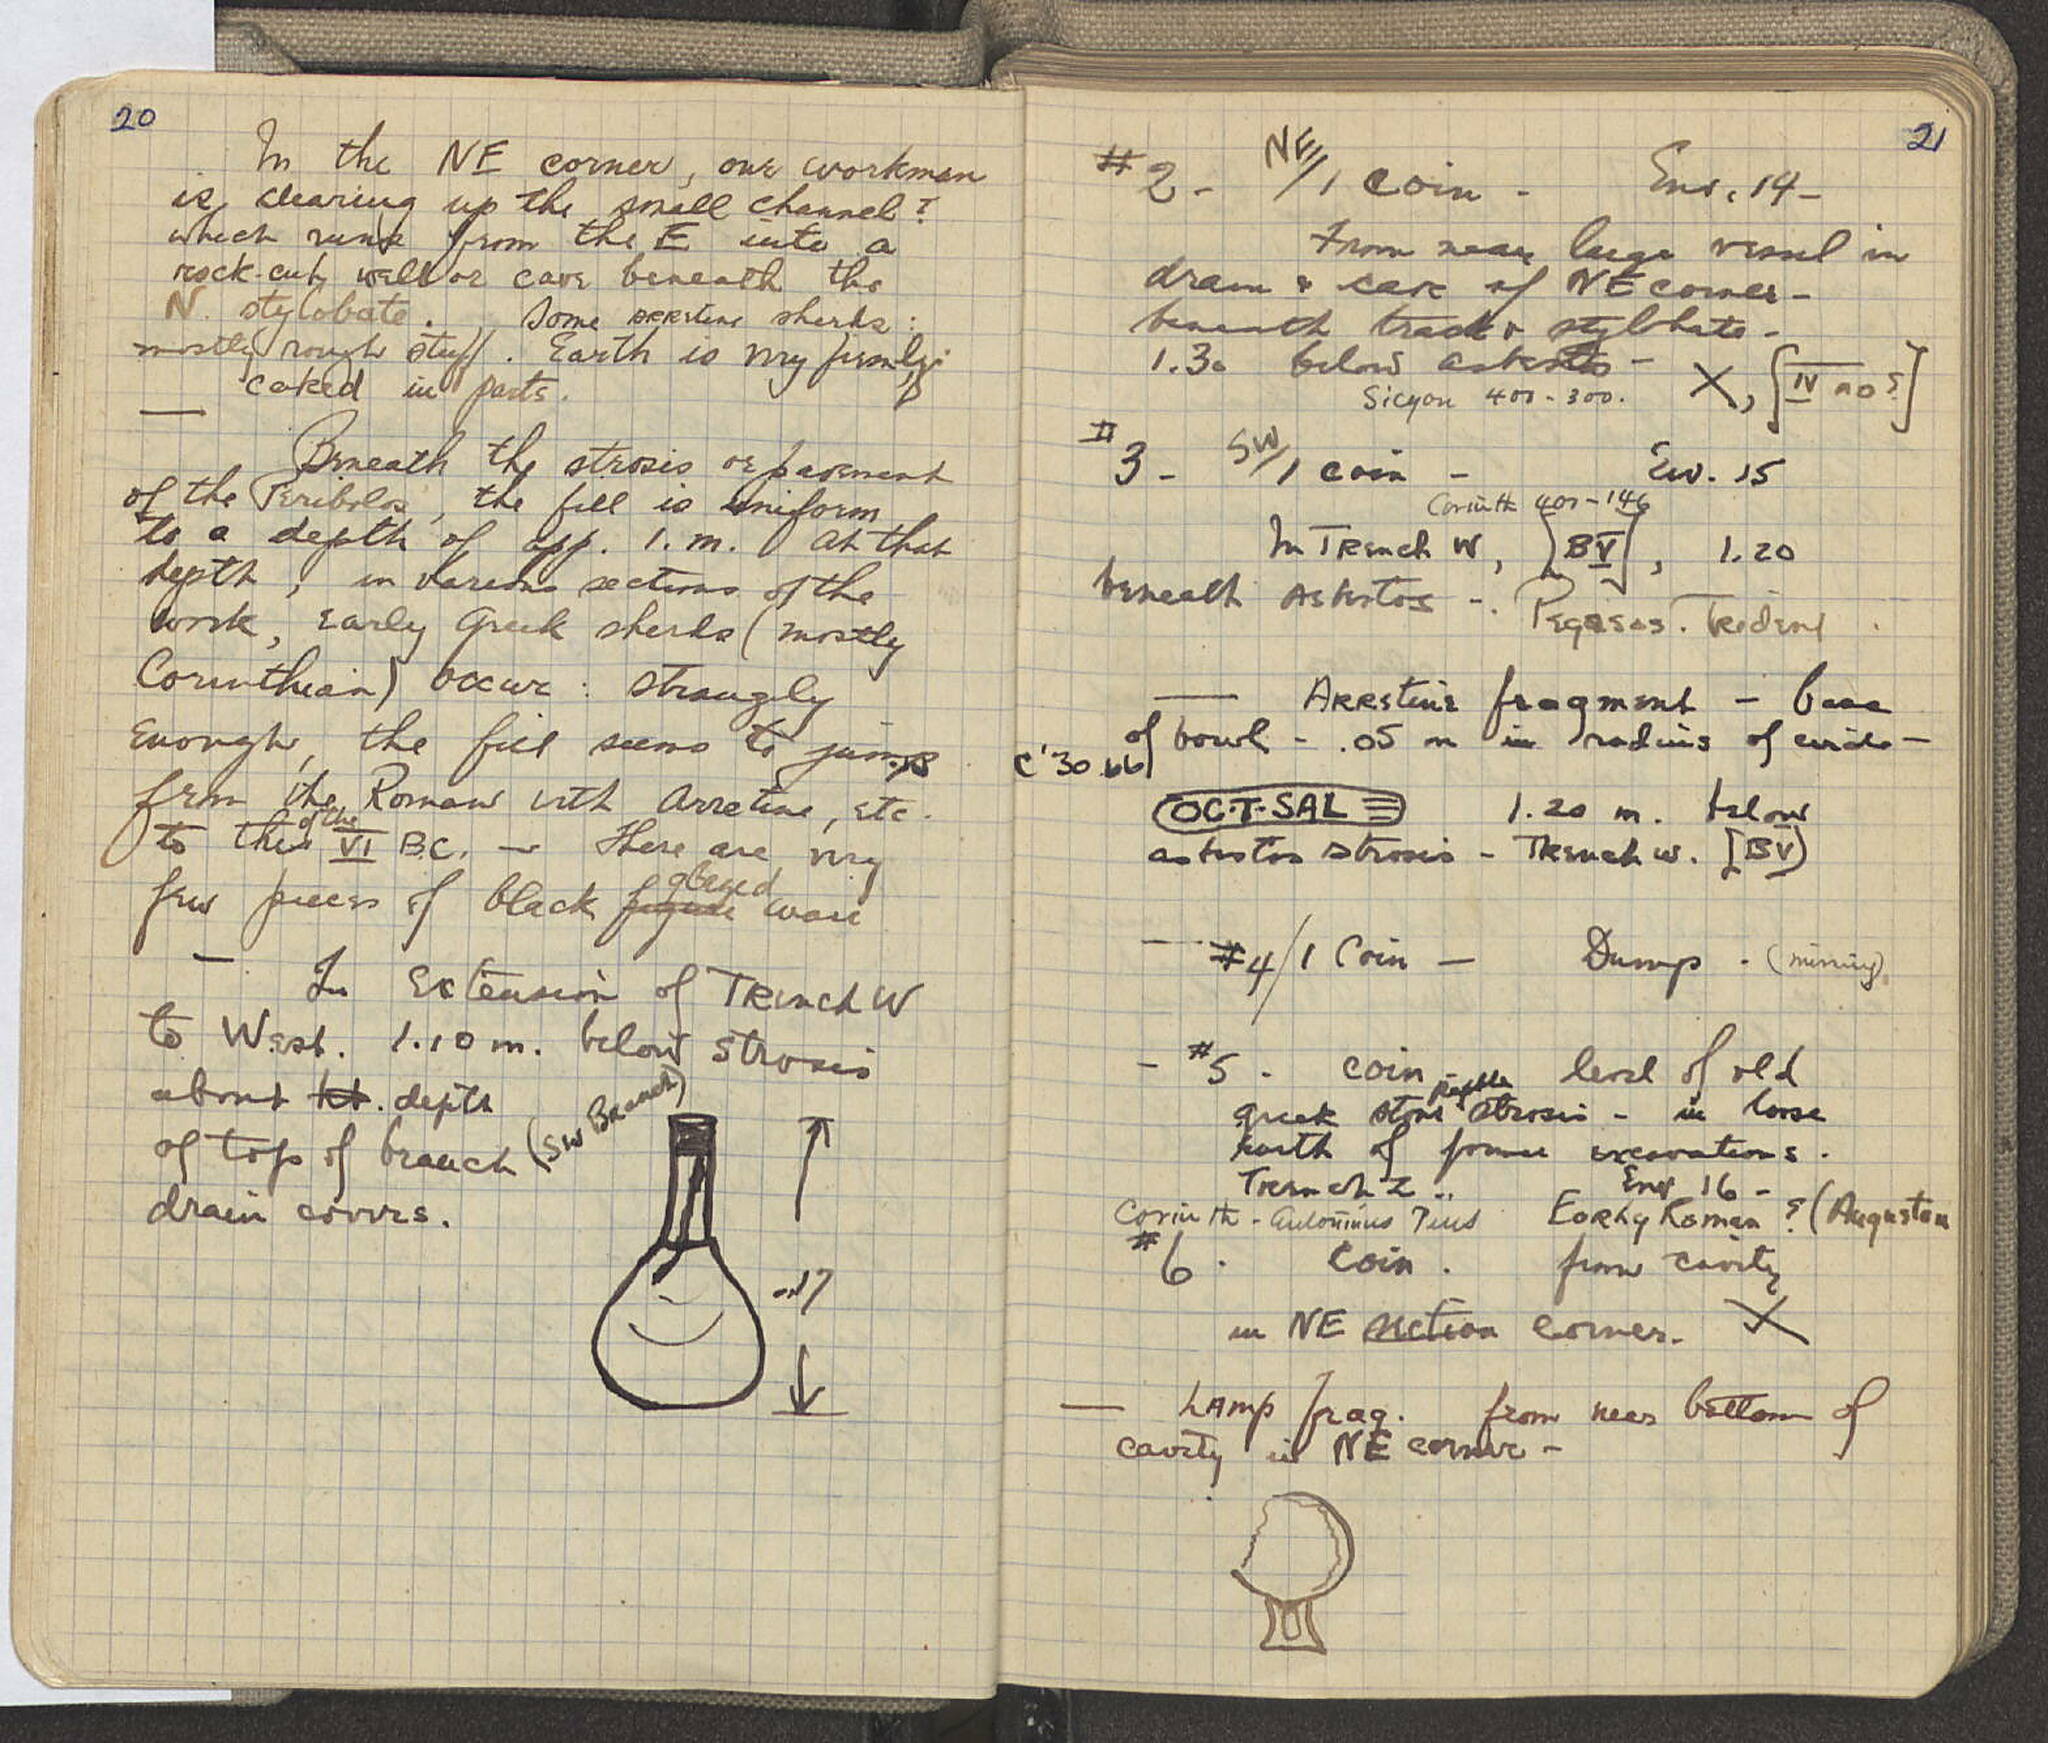 20
In the NE corner, one workman
is clearing up the small channel?
which runs from the E into a
rock-cut well or cave beneath the
N. stylobate. Some Arretine sherds:
mostly rough stuff. Earth is very firmly
caked in parts.
Beneath the strosis or pavement
of the Peribolos, the fill is uniform
to a depth of app. 1. m. At that
depth, in various sections of the
work, early Greek sherds (mostly
Corinthian) occur: strangely
enough, the fill seems to jump
from the Roman with Arretine, etc.
to the of the VI B.C. — There are very
few pieces of black figure glazed ware
— In Extension of Trench W
to West. 1.10 m. below strosis
about ht. depth
of top of branch (SW Branch)
drain covers.
.17
21
#2 - NE/1 coin - Env. 14 -
From near large vessel in
drain & cave of NE corner -
beneath track & stylobate -
1.30 below asbestos -
Sicyon 400-300. X, [IV BO?]
#3 - SW/1 coin - Env. 15
Corinth 400-146
In Trench W, [BV], 1.20
beneath Asbestos - Pegasos. Trident
— Arretine fragment - base
of bowl - .05 m in radius of circle -
C'30 66
OC·T·SAL 1.20 m. below
asbestos strosis - Trench W. [BV]
— #4/1 Coin — Dump. (missing)
- #5. coin level of old
Greek stone pebble strosis - in loose
earth of former excavations.
Trench Z .. Env 16 -
Corinth - Antoninus Pius Early Roman? (Augustan
#6. Coin. from cavity
in NE section corner. X
— Lamp frag. from near bottom of
cavity in NE corner -